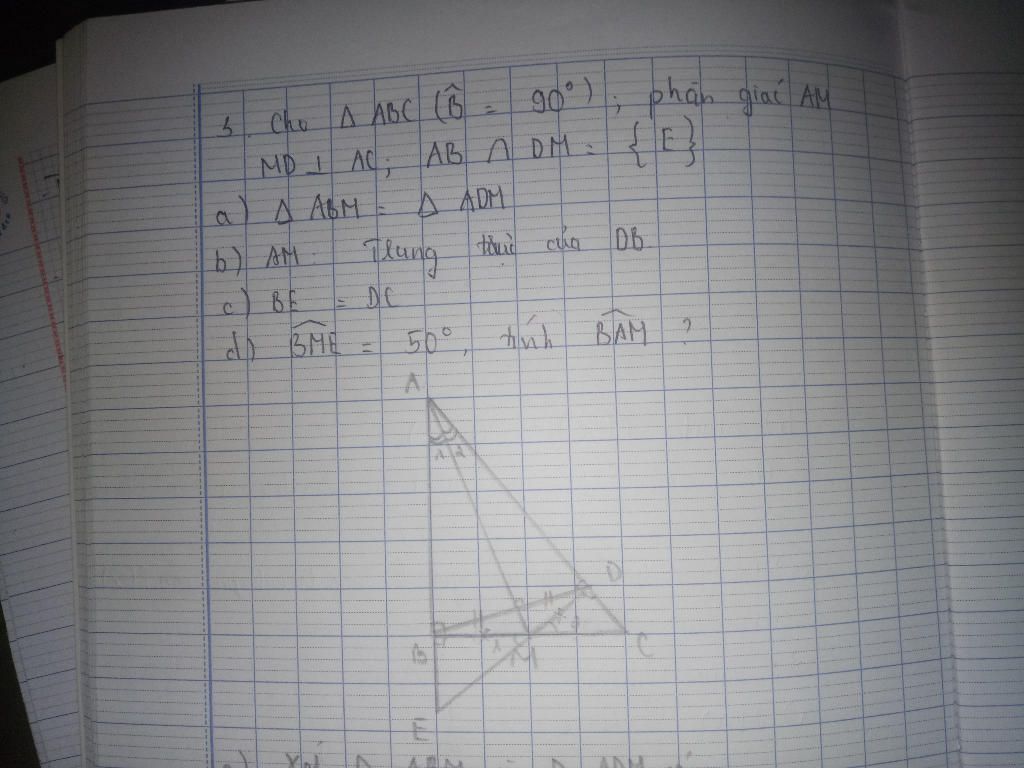 3. Cho Δ ABC (B̂ = 90°); phân giác AM
MD ⊥ AC; AB ∩ DM = {E}
a) Δ ABM = Δ ADM
b) AM: Trung trực của DB
c) BE = DC
d) BME = 50°, tính BAM ?
A
1 2
D
B
M
C
E
a) Xét Δ ABM và Δ ADM có